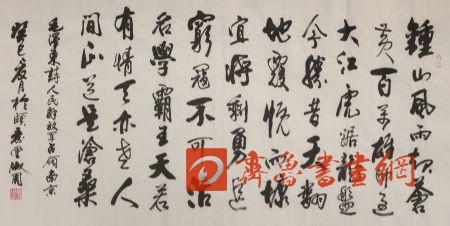 鍾山風雨起蒼
黄百萬雄師過
大江虎踞龍盤
今勝昔天翻
地覆慨而慷
宜將剩勇追
窮寇不可沽
名學霸王天若
有情天亦老人
間正道是滄桑
毛澤東詩人民解放軍占領南京
癸巳夏月於頤
齊魯書畫網